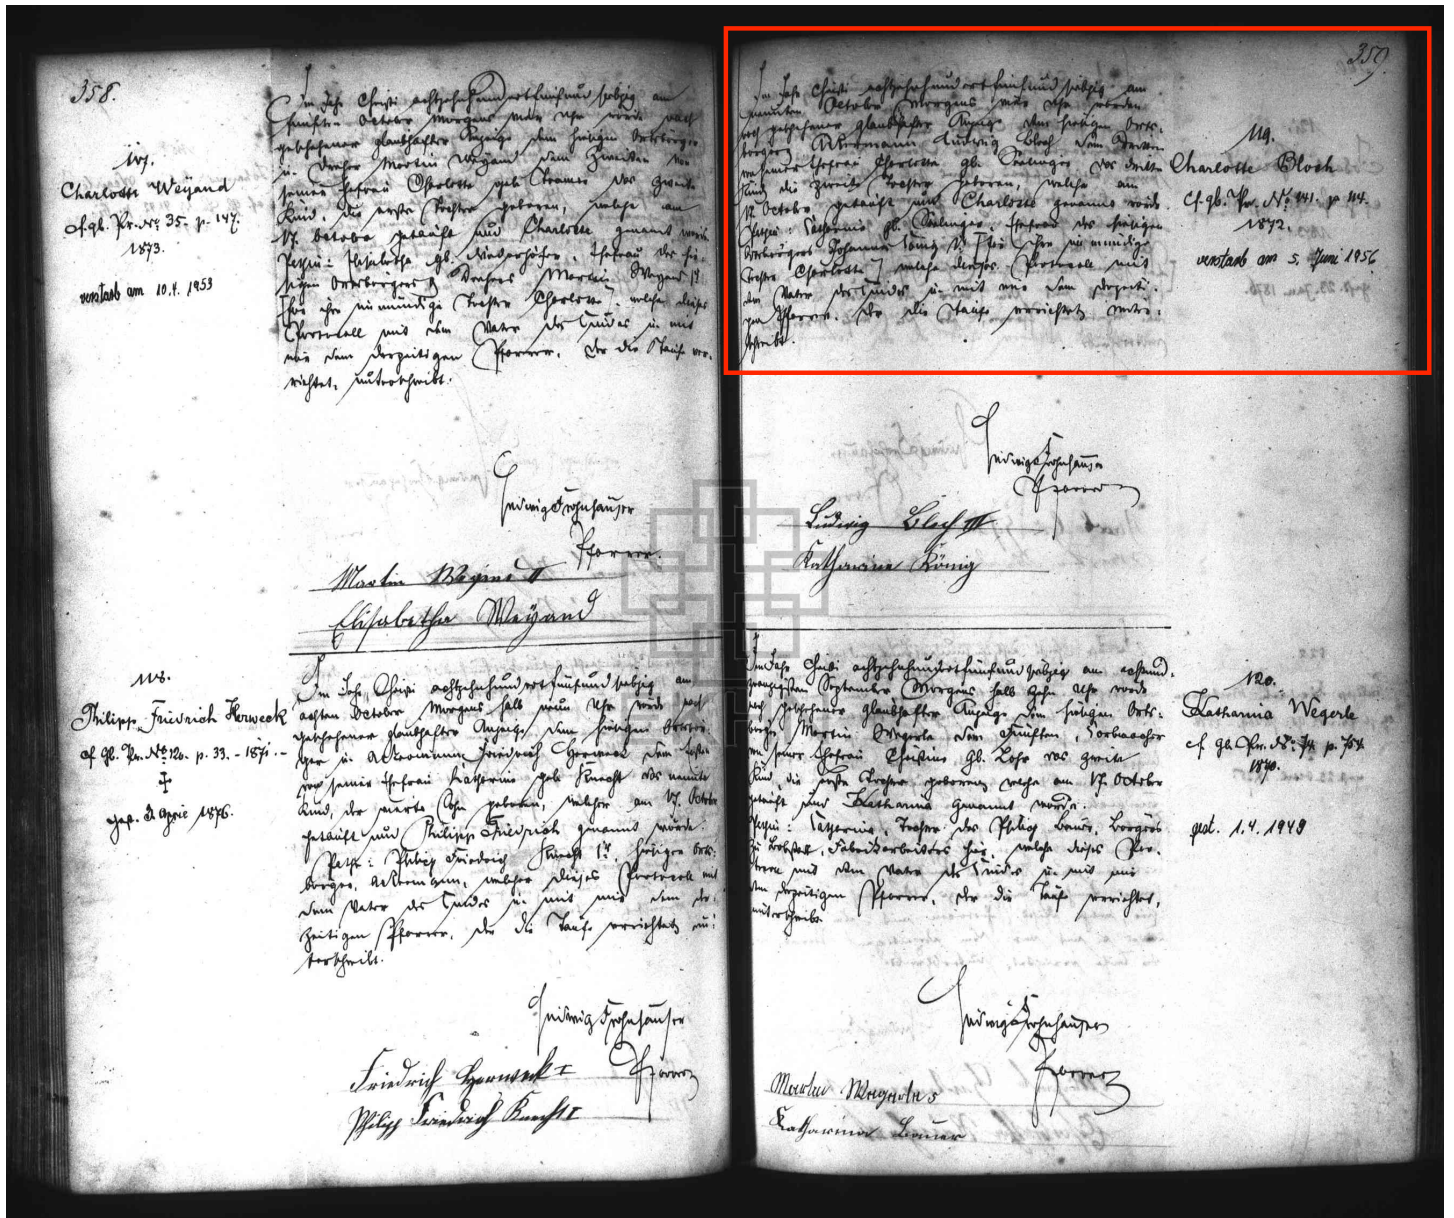 358.
117.
Charlotte Weyand
cf. gb. Pr. No 35. p. 147.
1873.
verstarb am 10.4.1953
Im Jahr Christi achtzehnhundertfünfundsiebzig am
fünften October Morgens Uhr wurde nach
geschehener glaubhafter Anzeige dem hiesigen Ortsbürger
u. Dreher Martin Weyand dem Zweiten von
seiner Ehefrau Charlotte geb. das zweite
Kind, die erste Tochter geboren, welche am
17. October getauft und Charlotte genannt wurde.
Pethin: Elisabetha gb. Ehefrau des hie-
sigen Ortsbürgers u. Drehers Martin Weyand
ihre unmündige Tochter Charlotte, welche dieses
Protocoll mit dem Vater des Kindes u. mit
mir dem derzeitigen Pfarrer, der die Taufe ver-
richtet, unterschreibt.
Ludwig Frohnhäuser
Pfarrer.
Martin Weyand II
Elisabetha Weyand
118.
Philipp Friedrich Herweck
cf gb. Pr. No 120. p. 33. - 1871. -
gest. April 1876.
Im Jahr Christi achtzehnhundertfünfundsiebzig am
achten October Morgens halb neun Uhr wurde nach
geschehener glaubhafter Anzeige dem hiesigen Ortsbür-
ger u. Ackermann Friedrich Herweck dem Ersten
von seiner Ehefrau Katharina geb. Knecht das neunte
Kind, der vierte Sohn geboren, welcher am 17. October
getauft und Philipp Friedrich genannt wurde.
Pethe: Philipp Friedrich Knecht hiesiger Orts-
bürger, Ackermann, welcher dieses Protocoll mit
dem Vater des Kindes u. mit mir dem der-
zeitigen Pfarrer, der die Taufe verrichtet, un-
terschreibt.
Ludwig Frohnhäuser
Pfarrer
Friedrich Herweck I
Philipp Friedrich Knecht I
359.
119.
Charlotte Bloch
cf. gb. Pr. No 141. p. 114.
1872.
verstarb am 5. Juni 1956
Im Jahr Christi achtzehnhundertfünfundsiebzig am
neunten October Morgens neun Uhr wurde
nach geschehener glaubhafter Anzeige dem hiesigen Orts-
bürger Ackermann Ludwig Bloch dem Dritten
von seiner Ehefrau Charlotte gb. das dritte
Kind die zweite Tochter geboren, welche am
17. October getauft und Charlotte genannt wurde
Pethin: Katharina gb. Ehefrau des hiesigen
Ortsbürgers Johannes König ihre unmündige
Tochter Charlotte, welche dieses Protocoll mit
dem Vater des Kindes u. mit mir dem derzeiti-
gen Pfarrer, der die Taufe verrichtet, unter-
schreibt.
Ludwig Frohnhäuser
Pfarrer
Ludwig Bloch III
Katharina König
120.
Katharina Wegerle
cf. gb. Pr. No. 74. p. 754
1870.
gest. 1.4.1949
Im Jahr Christi achtzehnhundertfünfundsiebzig am achtund-
zwanzigsten September Morgens halb zehn Uhr wurde
nach geschehener glaubhafter Anzeige dem hiesigen Orts-
bürger Martin Wegerle dem Fünften, Korbmacher
von seiner Ehefrau Christina gb. Lohr das zweite
Kind, die erste Tochter geboren, welche am 17. October
getauft und Katharina genannt wurde.
Pethin: Katharina, Tochter des Philipp Bauer, Bürgers
zu Bobstadt, Fabrikarbeiters hier, welche dieses Pro-
tocoll mit dem Vater des Kindes u. mit mir
dem derzeitigen Pfarrer, der die Taufe verrichtet,
unterschreibt.
Ludwig Frohnhäuser
Pfarrer
Martin Wegerle 5
Katharina Bauer